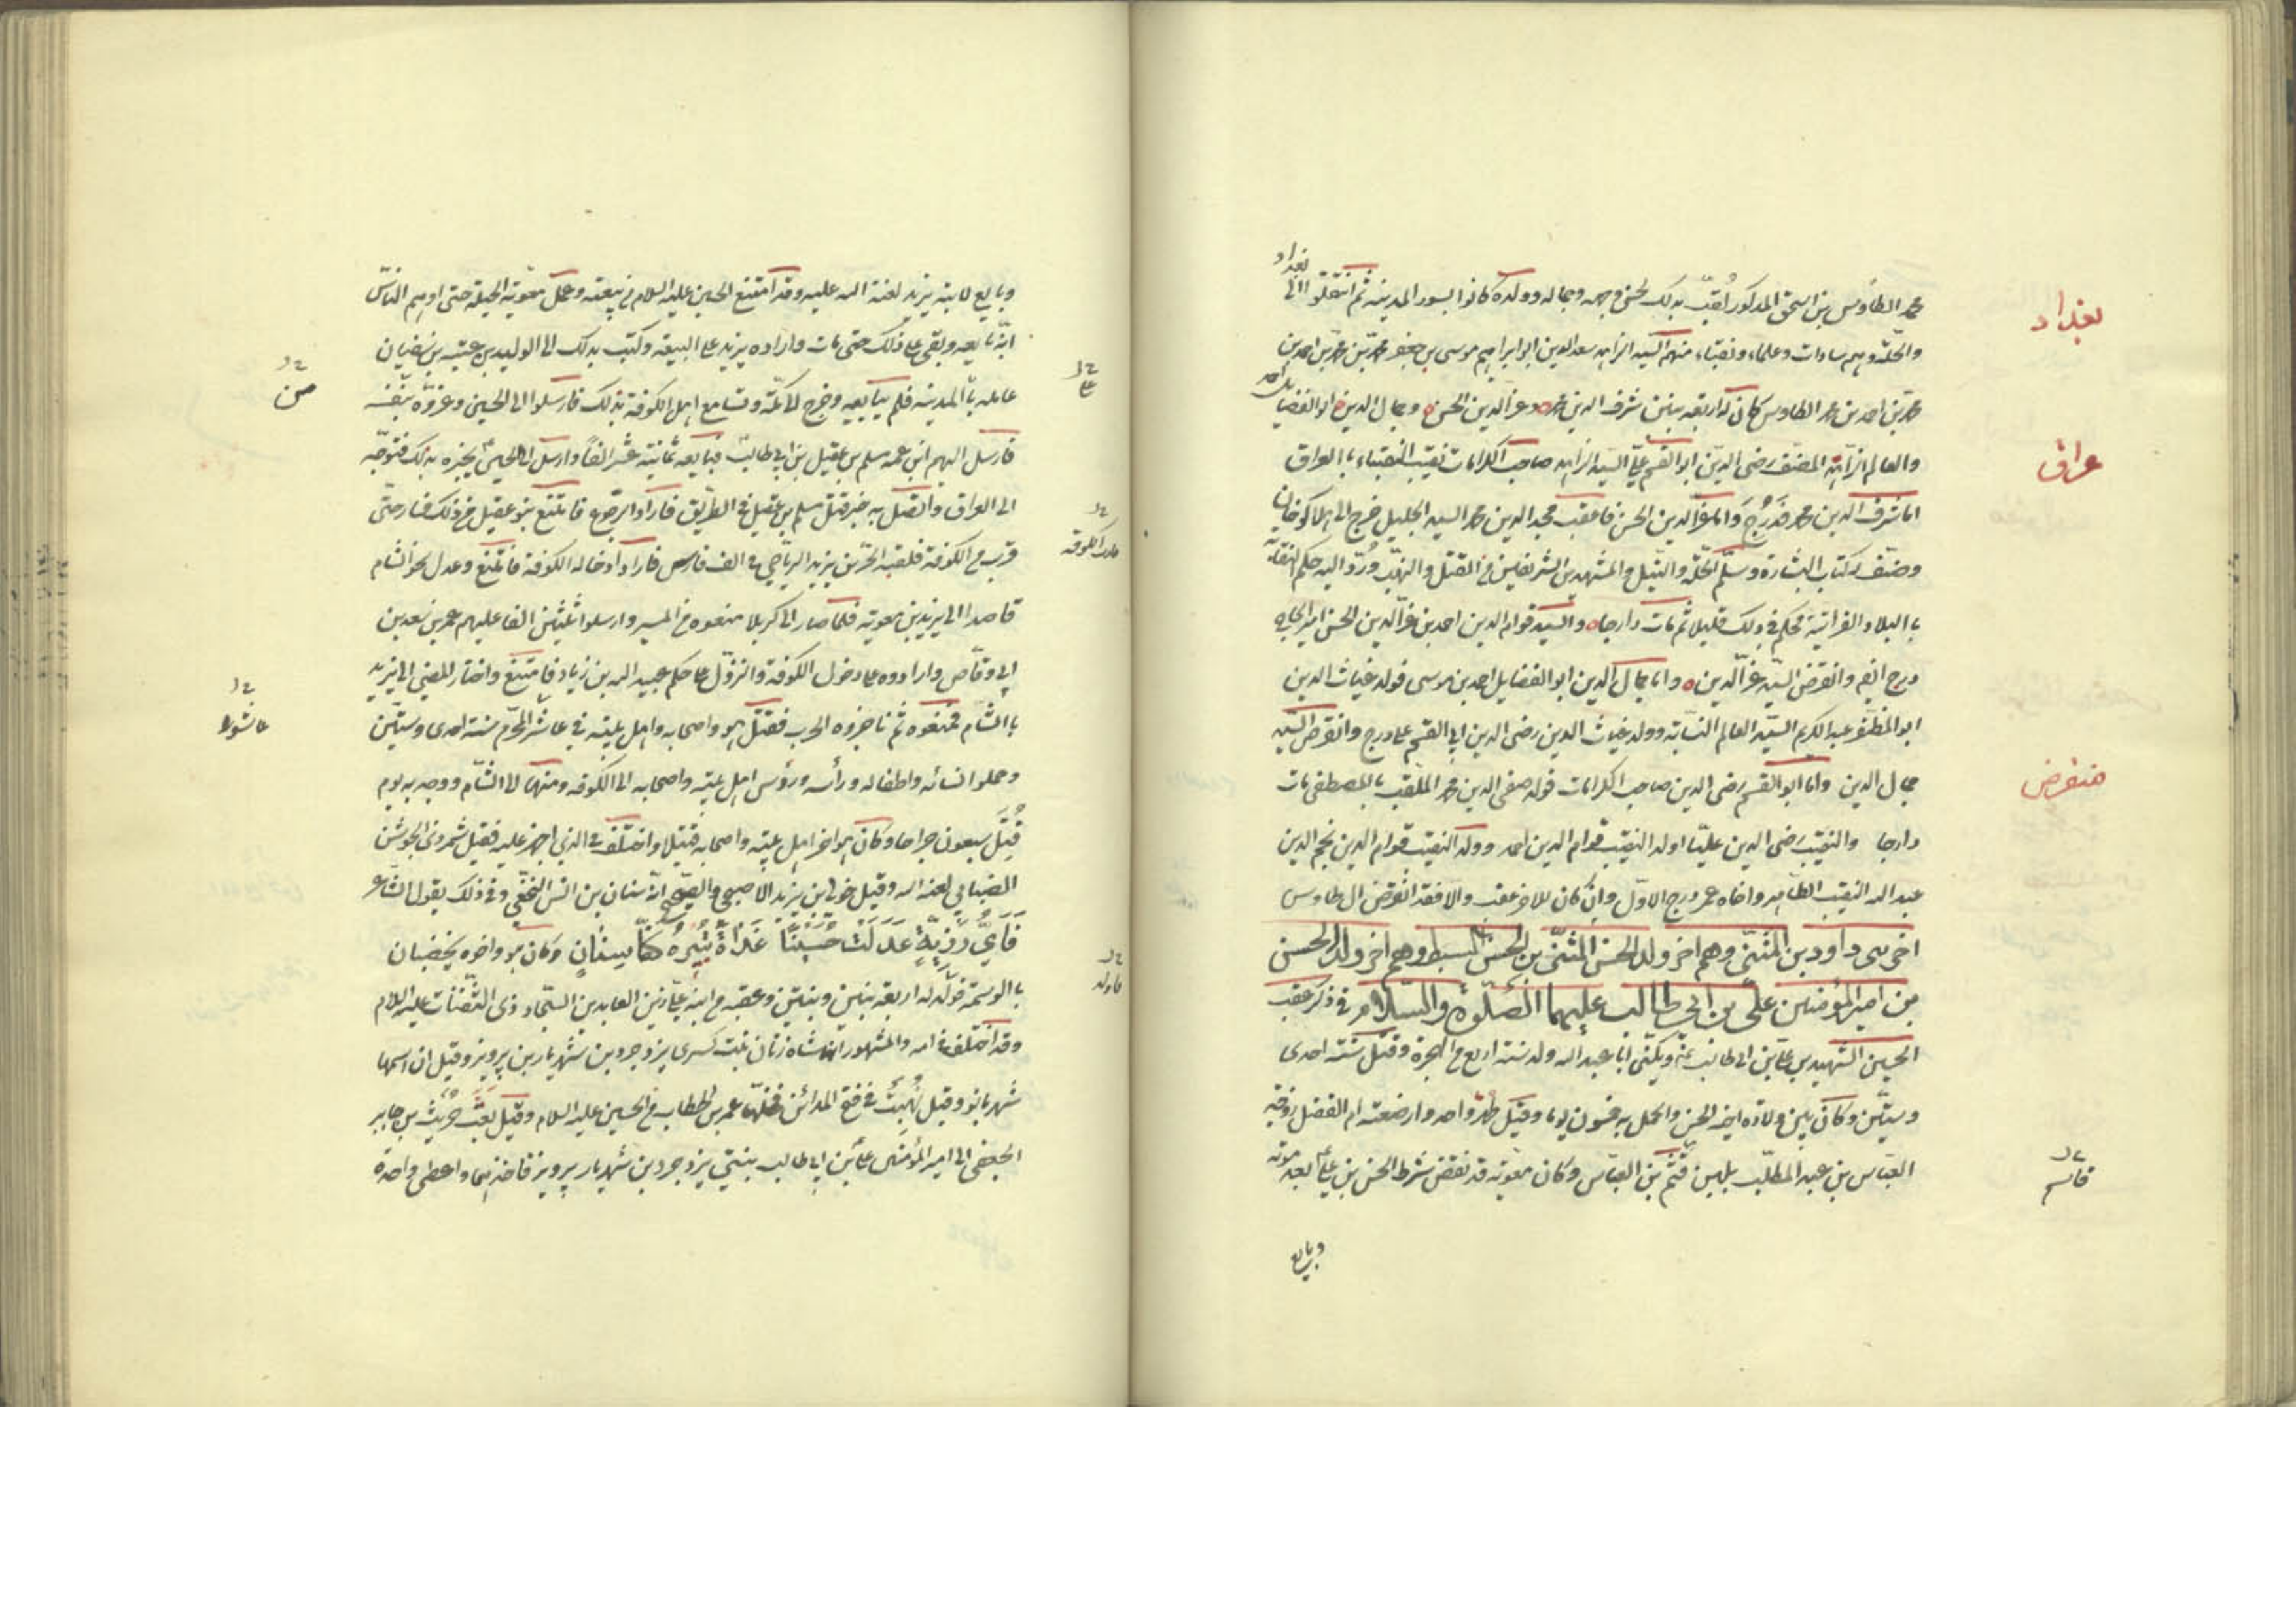 محمد الطاوس بن اسحق المذكور لقب بذلك لحسن وجهه وجماله وولده كانوا بسور المدينة ثم انتقلوا الى بغداد
والحلة وهم سادات وعلماء ونقباء منهم السيد الزاهد سعد الدين ابو ابراهيم موسى بن جعفر بن محمد بن احمد بن
محمد بن احمد بن محمد الطاوس كان له اربعة بنين شرف الدين محمد وعز الدين الحسن وجمال الدين ابو الفضايل احمد
والعالم الزاهد المصنف رضى الدين ابو القسم على السيد الزاهد صاحب الكرامات نقيب النقباء بالعراق
اما شرف الدين محمد فدرج واما عز الدين الحسن فاعقب مجد الدين محمد السيد الجليل خرج الى هلاكوخان
وصنف له كتاب البشارة وسلم الحلة والنيل والمشهدين الشريفين من القتل والنهب ورد اليه حكم النقابة
بالبلاد الفراتية فحكم في ذلك قليلا ثم مات دارجا والسيد قوام الدين احمد بن عز الدين الحسن امير الحاج
درج ايضا وانقرض السيد عز الدين واما جمال الدين ابو الفضايل احمد بن موسى فولد غياث الدين
ابو المظفر عبد الكريم السيد العالم النسابة وولد غياث الدين رضى الدين ابى القسم على درج وانقرض السيد
جمال الدين واما ابو القسم رضى الدين صاحب الكرامات فولد صفى الدين محمد الملقب بالمصطفى مات
دارجا والنقيب رضى الدين عليا اولد النقيب قوام الدين احمد وولد النقيب قوام الدين نجم الدين
عبد الله النقيب الطاهر واخاه عمر درج الاول وان كان للاخر عقب والا فقد انقرض ال طاوس
اخر بنى داود بن المثنى وهم اخر ولد الحسن المثنى بن الحسن السبط وهم اخر ولد الحسن
بن امير المؤمنين على بن ابي طالب عليهما الصلوة والسلام في ذكر عقب
الحسين الشهيد بن على بن ابى طالب ويكنى ابا عبد الله ولد سنة اربع من الهجرة وقتل سنة احدى
وستين وكان بين ولادة اخيه الحسن والحمل به خمسون يوما وقيل طهر واحد وارضعته ام الفضل زوجة
العباس بن عبد المطلب بلبن قثم بن العباس وكان معوية قد نقض شرط الحسن بن على بعد موته
وبايع
بغداد
عراق
منقرض
قاسم
وبايع لابنه يزيد لعنة الله عليه وقد امتنع الحسين عليه السلام في بيعته وعمل معوية الحيلة حتى اوهم الناس
انه بايعه وبقى على ذلك حتى مات واراده يزيد على البيعة وكتب بذلك الى الوليد بن عتبة بن سفيان
عامله بالمدينة فلم يبايعه وخرج الى مكة وتسامع اهل الكوفة بذلك فارسلوا الى الحسين وغروه بنفسه
فارسل اليهم ابن عمه مسلم بن عقيل بن ابى طالب فبايعه ثمانية عشر الفا وارسل الى الحسين يخبره بذلك فتوجه
الى العراق واتصل به خبر قتل مسلم بن عقيل في الطريق فاراد الرجوع فامتنع بنو عقيل من ذلك فسار حتى
قرب من الكوفة فلقيه الحر بن يزيد الرياحي في الف فارس فاراد ادخاله الكوفة فامتنع وعدل نحو الشام
قاصدا الى يزيد بن معوية فلما صار الى كربلا منعوه من المسير وارسلوا ثلثين الفا عليهم عمر بن سعد بن
ابى وقاص وارادوه على دخول الكوفة والنزول على حكم عبيد الله بن زياد فامتنع واختار المضي الى يزيد
بالشام فمنعوه ثم ناجزوه الحرب فقتل هو واصحابه واهل بيته في عاشر المحرم سنة احدى وستين
وحملوا نسائه واطفاله ورأسه ورؤس اهل بيته واصحابه الى الكوفة ومنها الى الشام ووجد به يوم
قتل سبعون جراحا وكان هو اخر اهل بيته واصحابه قتيلا واختلف في الذي اجهز عليه فقيل شمر ذى الجوشن
الضبابي لعنه الله وقيل خولى بن يزيد الاصبحى والصحيح انه سنان بن انس النخعي وفي ذلك يقول الشاعر
فاي رزية عدلت حسينا غداة تبيره كفا سنان وكان هو واخوه يخضبان
بالوسمة فولد له اربعة بنين وبنتين وعقبه من ابنه على زين العابدين السجاد ذى الثفنات عليه السلام
وقد اختلف في امه والمشهور انها شاه زنان بنت كسرى يزدجرد بن شهريار بن پرويز وقيل ان اسمها
شهربانو وقيل نهبت في فتح المدائن فنفلها عمر بن الخطاب من الحسين عليه السلام وقيل بعث حريث بن جابر
الجعفى الى امير المؤمنين على بن ابى طالب بنتي يزدجرد بن شهريار پرويز فاخذهما واعطى واحدة
على
من
عاشورا
فاولد